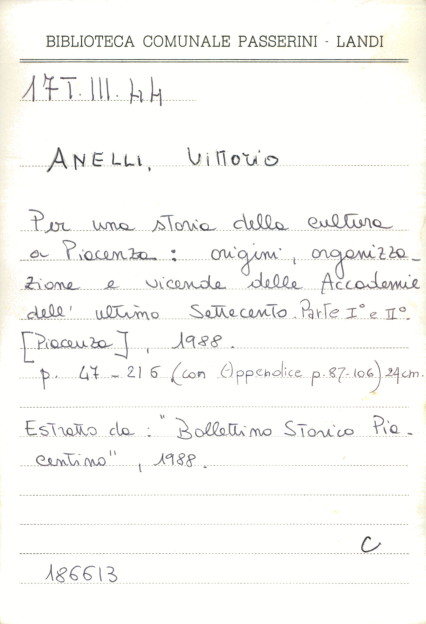 BIBLIOTECA COMUNALE PASSERINI - LANDI
17T.III.44
ANELLI, Vittorio
Per una storia della cultura
a Piacenza: origini, organizza-
zione e vicende delle Accademie
dell' ultimo Settecento. Parte I° e II°.
[Piacenza], 1988.
p. 47-216 (con Appendice p.87-106) 24cm.
Estratto da: "Bollettino Storico Pia-
centino", 1988.
C
186613